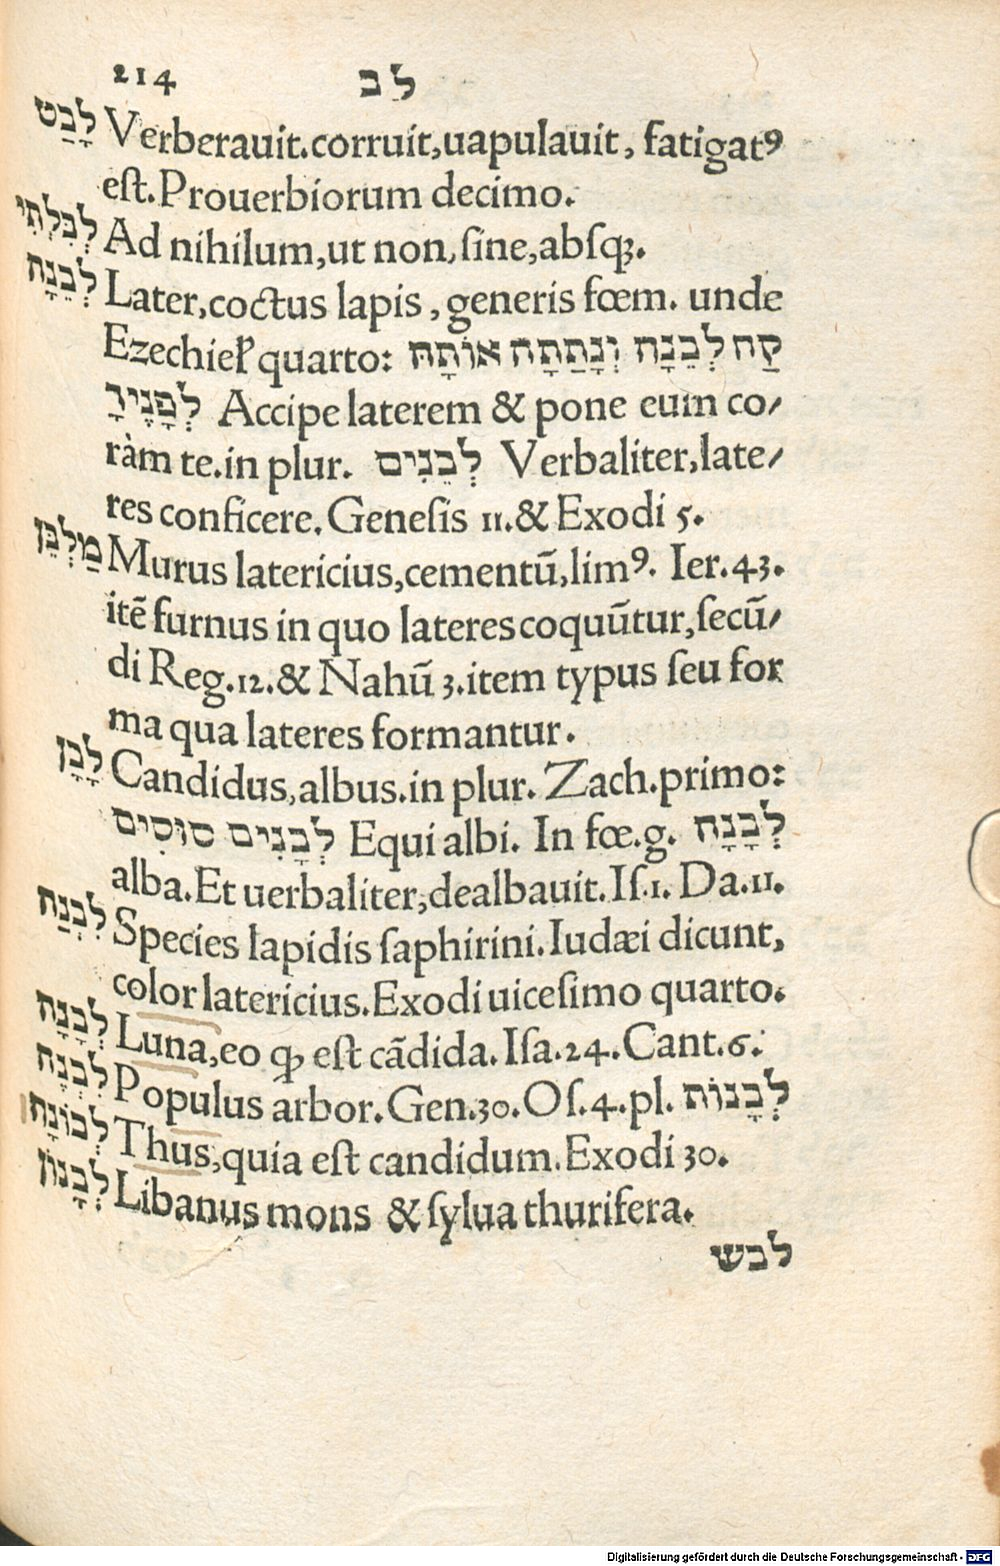 214 לב
לָבַט Verberauit.corruit,uapulauit, fatigatꝰ
eſt.Prouerbiorum decimo.
לְבִלְתִּי Ad nihilum,ut non,ſine,abſqꝫ.
לְבֵנָה Later,coctus lapis, generis fœm. unde
Ezechiel quarto: קַח לְבֵנָה וְנָתַתָּה אוֹתָהּ
לְפָנֶיךָ Accipe laterem & pone eum co/
ràm te.in plur. לְבֵנִים Verbaliter,late/
res conficere. Geneſis 11.& Exodi 5.
מַלְבֵּן Murus latericius,cementū,limꝰ. Ier.43.
itē furnus in quo lateres coquūtur,ſecū/
di Reg.12.& Nahū 3.item typus ſeu for
ma qua lateres formantur.
לָבָן Candidus,albus.in plur. Zach.primo:
לְבָנִים סוּסִים Equi albi. In fœ.g. לְבָנָה
alba.Et uerbaliter,dealbauit.Iſ.1. Da.11.
לִבְנַת Species lapidis ſaphirini.Iudæi dicunt,
color latericius.Exodi uiceſimo quarto.
לְבָנָה Luna,eo ꝙ eſt cādida. Iſa.24.Cant.6.
לִבְנֶה Populus arbor.Gen.30.Oſ.4.pl. לְבָנוֹת
לְבוֹנָה Thus,quia eſt candidum.Exodi 30.
לְבָנוֹן Libanus mons & ſylua thurifera.
לבש
Digitalisierung gefördert durch die Deutsche Forschungsgemeinschaft - DFG